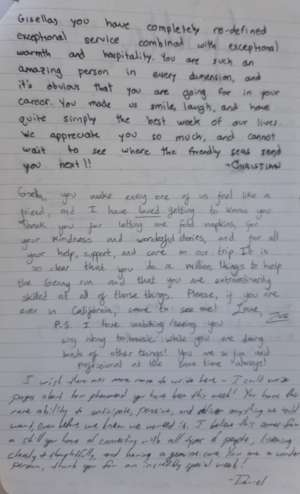 Gisella, you have completely re-defined
exceptional service combined with exceptional
warmth and hospitality. You are such an
amazing person in every dimension, and
it's obvious that you are going far in your
career. You made us smile, laugh, and have
quite simply the best week of our lives.
We appreciate you so much, and cannot
wait to see where the friendly seas send
you next!!
- CHRISTIAN
Gisella, you make every one of us feel like a
friend, and I have loved getting to know you
Thank you for letting me fold napkins, for
your kindness and wonderful stories, and for all
your help, support, and care on our trip. It is
so clear that you do a million things to help
the run and that you are extraordinarily
skilled at all of those things. Please, if you are
ever in California, come to see me! Love,
P.S. I love watching/seeing you
to music while you are doing
of other things! You are so fun and
professional at the same time always!
I wish there was more room to write here - I could write
pages about how phenomenal you have been this week! You have the
rare ability to anticipate, perceive, and deliver anything we could
want, even before we knew we wanted it. I believe this comes from
a skill you have of connecting with all types of people, listening
closely & thoughtfully, and having a genuine care. You are a wonderful
person, thank you for an incredibly special week!
- Daniel